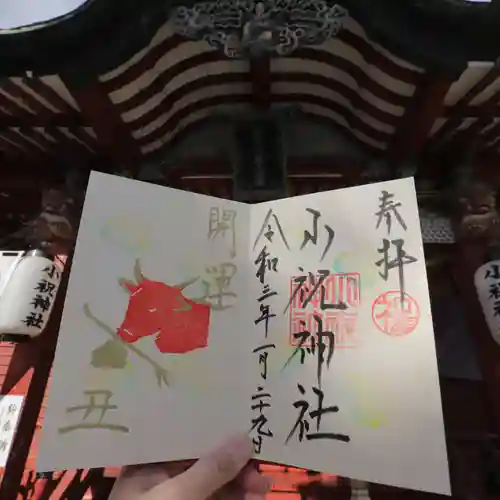 奉拝
小祝神社
令和三年一月二十九日
開運
丑
小祝神社
小祝神社